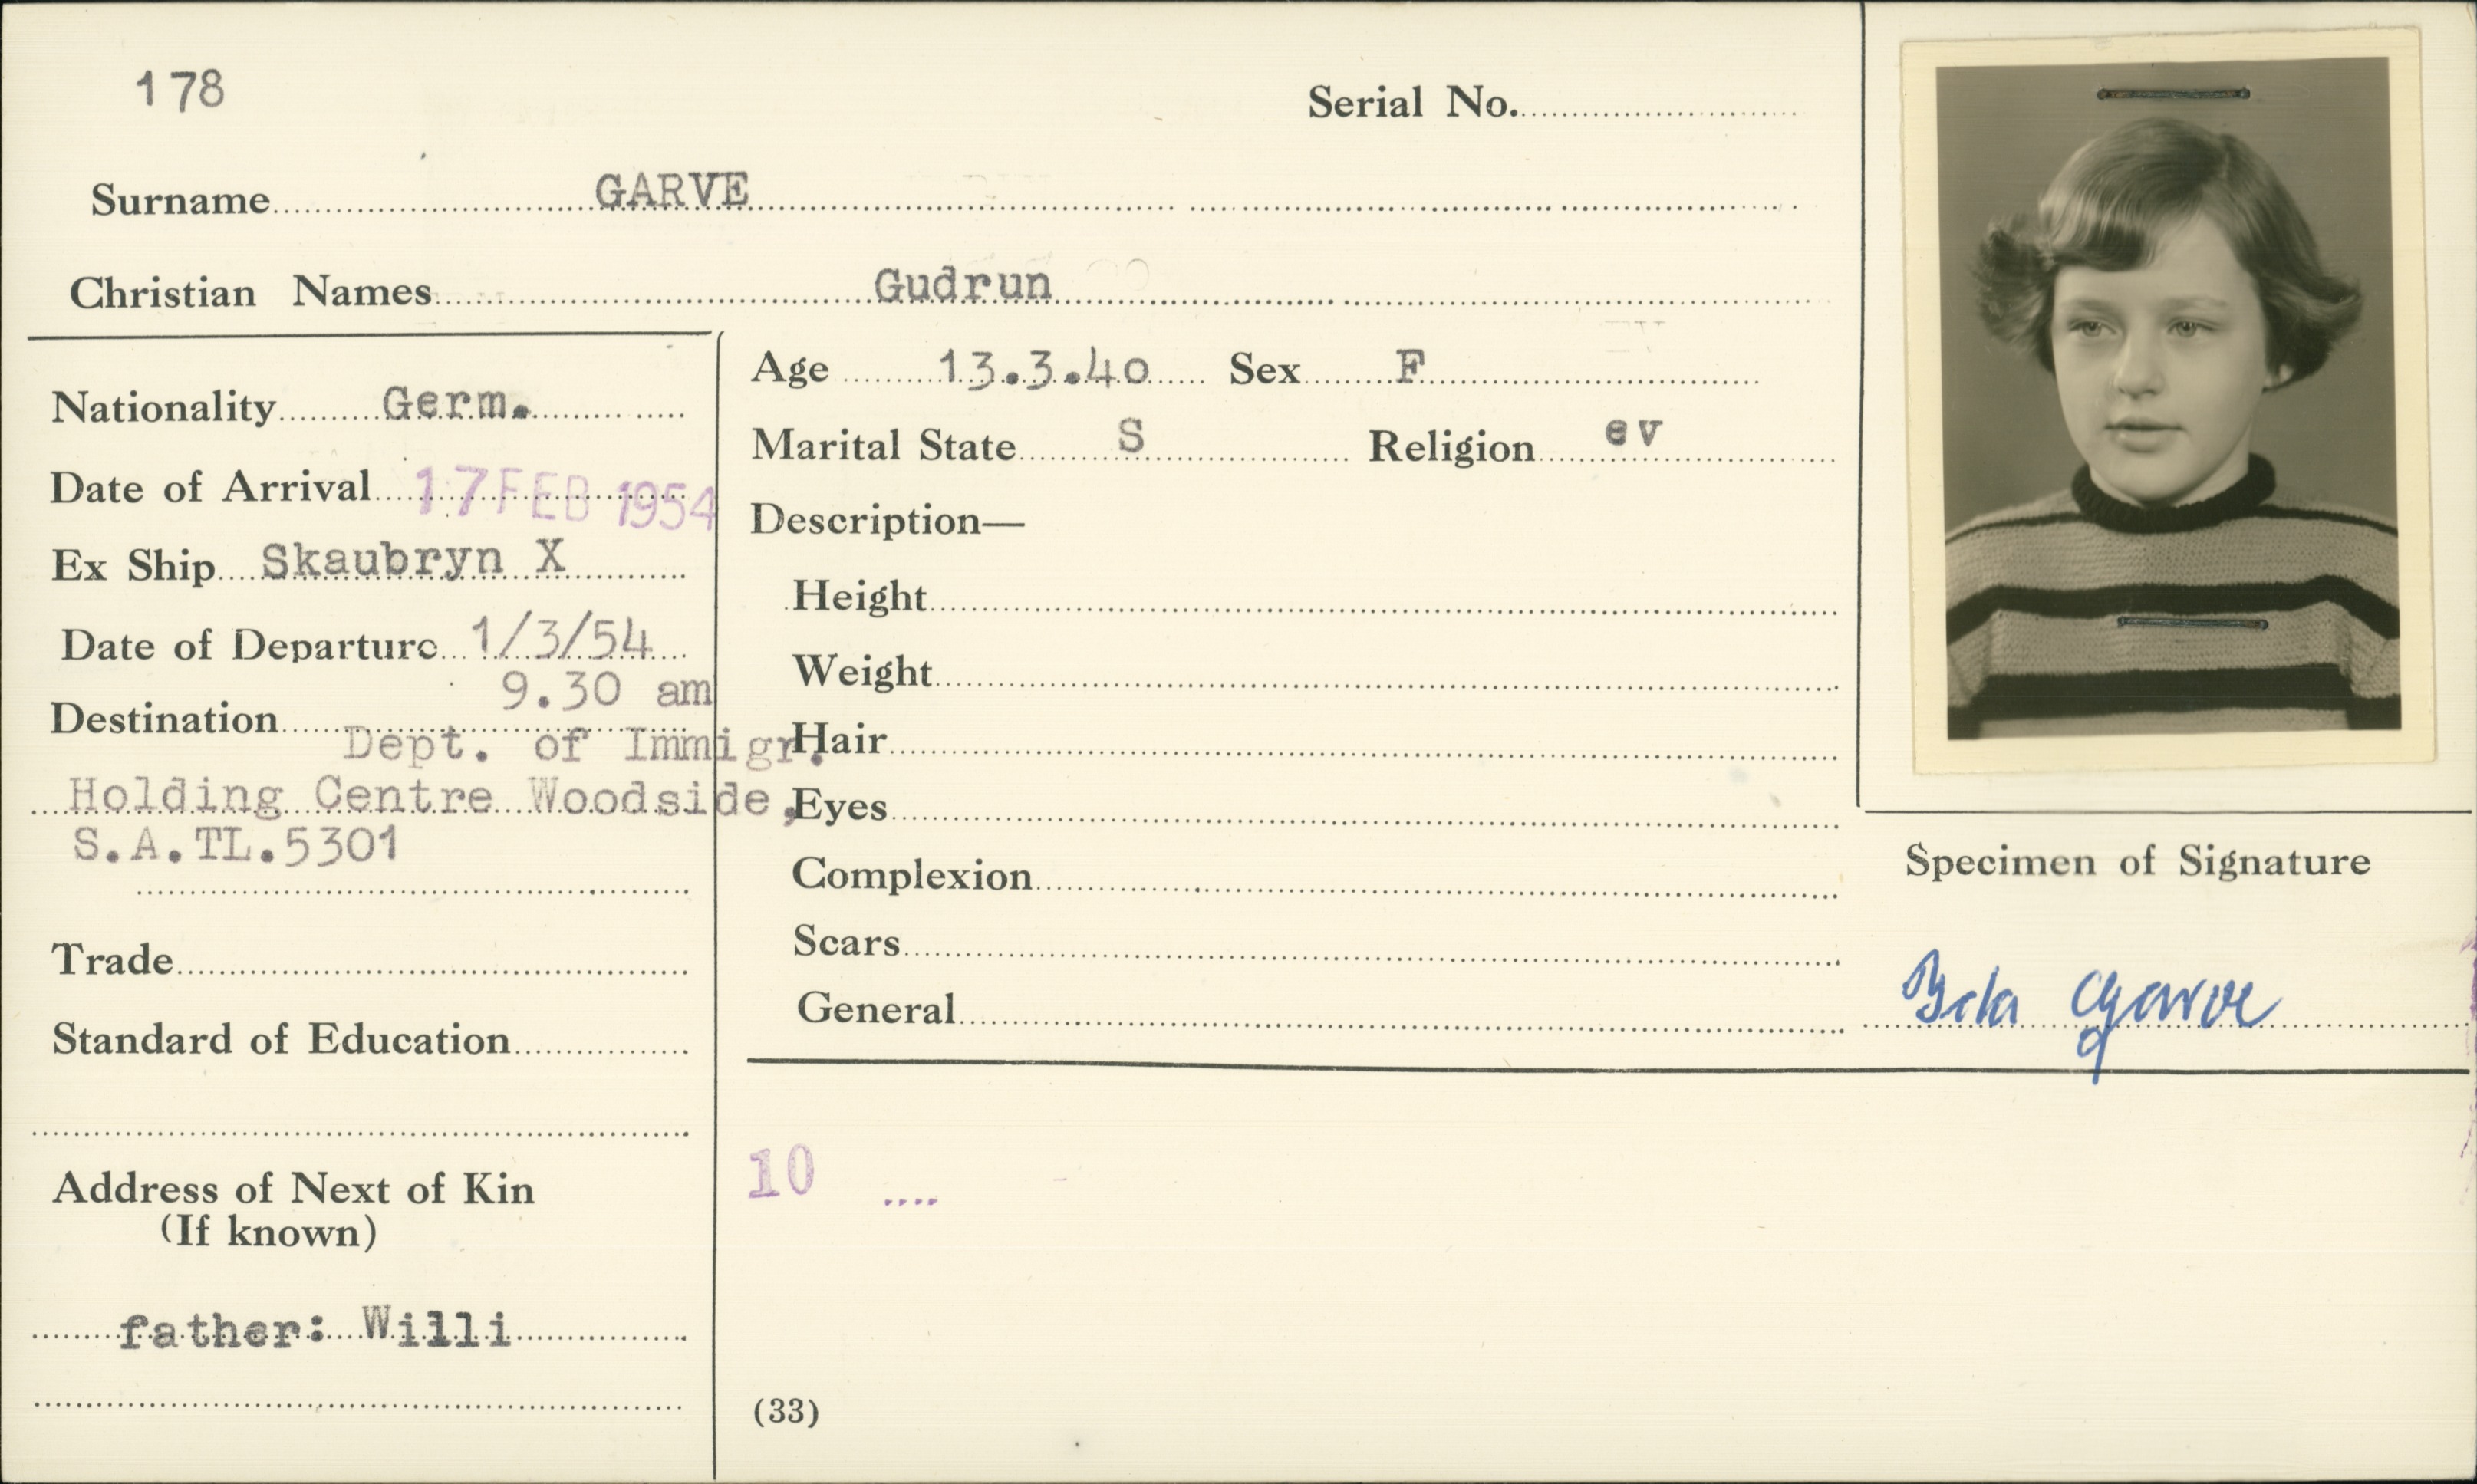 178
Serial No.
Surname GARVE
Christian Names Gudrun
Nationality Germ.
Date of Arrival 17 FEB 1954
Ex Ship Skaubryn X
Date of Departure 1/3/54
9.30 am
Destination
Dept. of Immigr.
Holding Centre Woodside,
S.A.TL.5301
Trade
Standard of Education
Address of Next of Kin
(If known)
father: Willi
Age 13.3.40 Sex F
Marital State S Religion ev
Description—
Height
Weight
Hair
Eyes
Complexion
Scars
General
10 ....
(33)
Specimen of Signature
Garve